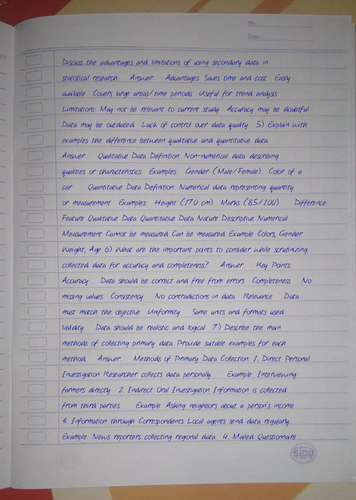 No.
Date:
Discuss the advantages and limitations of using secondary data in
statistical research. Answer Advantages Saves time and cost Easily
available Covers large areas/time periods Useful for trend analysis
Limitations May not be relevant to current study Accuracy may be doubtful
Data may be outdated Lack of control over data quality 5) Explain with
examples the difference between qualitative and quantitative data
Answer Qualitative Data Definition Non-numerical data describing
qualities or characteristics Examples Gender (Male/Female) Color of a
car Quantitative Data Definition Numerical data representing quantity
or measurement Examples Height (170 cm) Marks (85/100) Difference
Feature Qualitative Data Quantitative Data Nature Descriptive Numerical
Measurement Cannot be measured Can be measured Example Colors, Gender
Weight, Age 6) What are the important points to consider while scrutinizing
collected data for accuracy and completeness? Answer Key Points
Accuracy Data should be correct and free from errors Completeness No
missing values Consistency No contradictions in data Relevance Data
must match the objective Uniformity Same units and formats used
Validity Data should be realistic and logical 7) Describe the main
methods of collecting primary data Provide suitable examples for each
method Answer Methods of Primary Data Collection 1. Direct Personal
Investigation Researcher collects data personally Example Interviewing
farmers directly 2. Indirect Oral Investigation Information is collected
from third parties Example Asking neighbors about a person's income
3. Information through Correspondents Local agents send data regularly
Example News reporters collecting regional data 4. Mailed Questionnaire